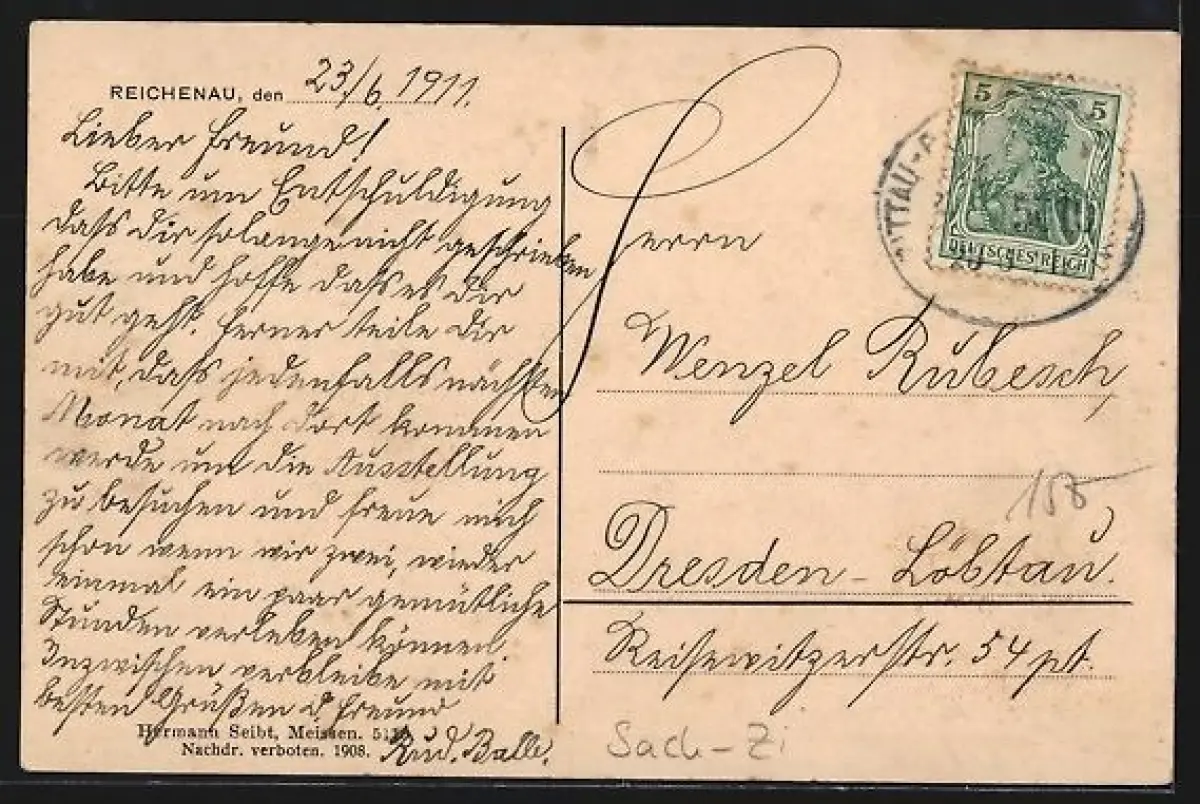 REICHENAU, den 23/6. 1911.
Lieber Freund!
Bitte um Entschuldigung
dass dir solange nicht geschrieben
habe und hoffe dass es dir
gut geht. Ferner teile dir
mit, dass jedenfalls nächsten
Monat nach dort kommen
werde um die Ausstellung
zu besuchen und freue mich
schon wenn wir zwei, wieder
einmal ein paar gemütliche
Stunden verleben können.
Inzwischen verbleibe mit
besten Grüßen d. Freund
Rud. Balle.
Hermann Seibt, Meissen.
Nachdr. verboten. 1908.
5 5
DEUTSCHES REICH
ITTAU-
Herrn
Wenzel Rubesch,
Dresden-Löbtau.
Reisewitzerstr. 54 pt.
Sach-Zi